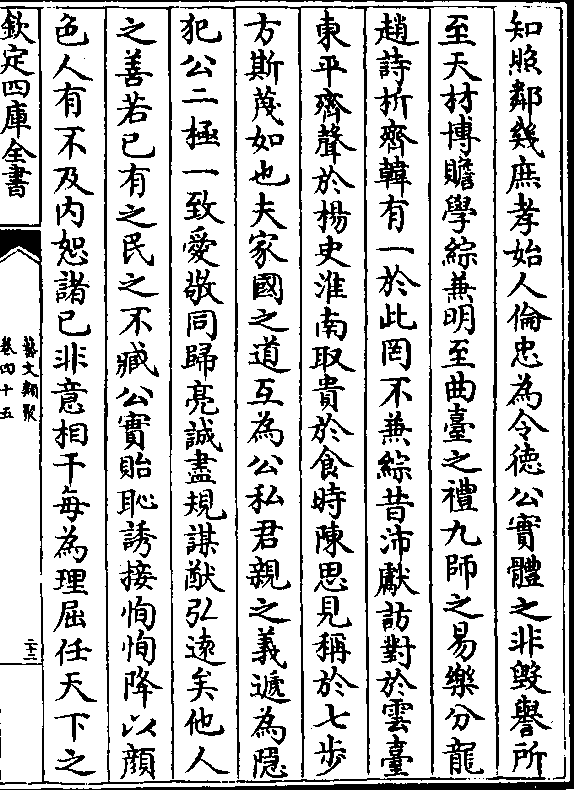 知照鄰幾庶孝始人倫忠為令徳公實體之非毀譽所
至天材博贍學綜兼明至曲臺之禮九師之易樂分龍
趙詩析齊韓有一於此罔不兼綜昔沛獻訪對於雲臺
東平齊聲於楊史淮南取貴於食時陳思見稱於七步
方斯蔑如也夫家國之道互為公私君親之義遞為隱
犯公二極一致愛敬同歸亮誠盡規謀猷弘逺矣他人
之善若已有之民之不臧公實貽恥誘接恂恂降以顔
色人有不及内恕諸已非意相干每為理屈任天下之
欽定四庫全書
藝文類聚
卷四十五
二十三